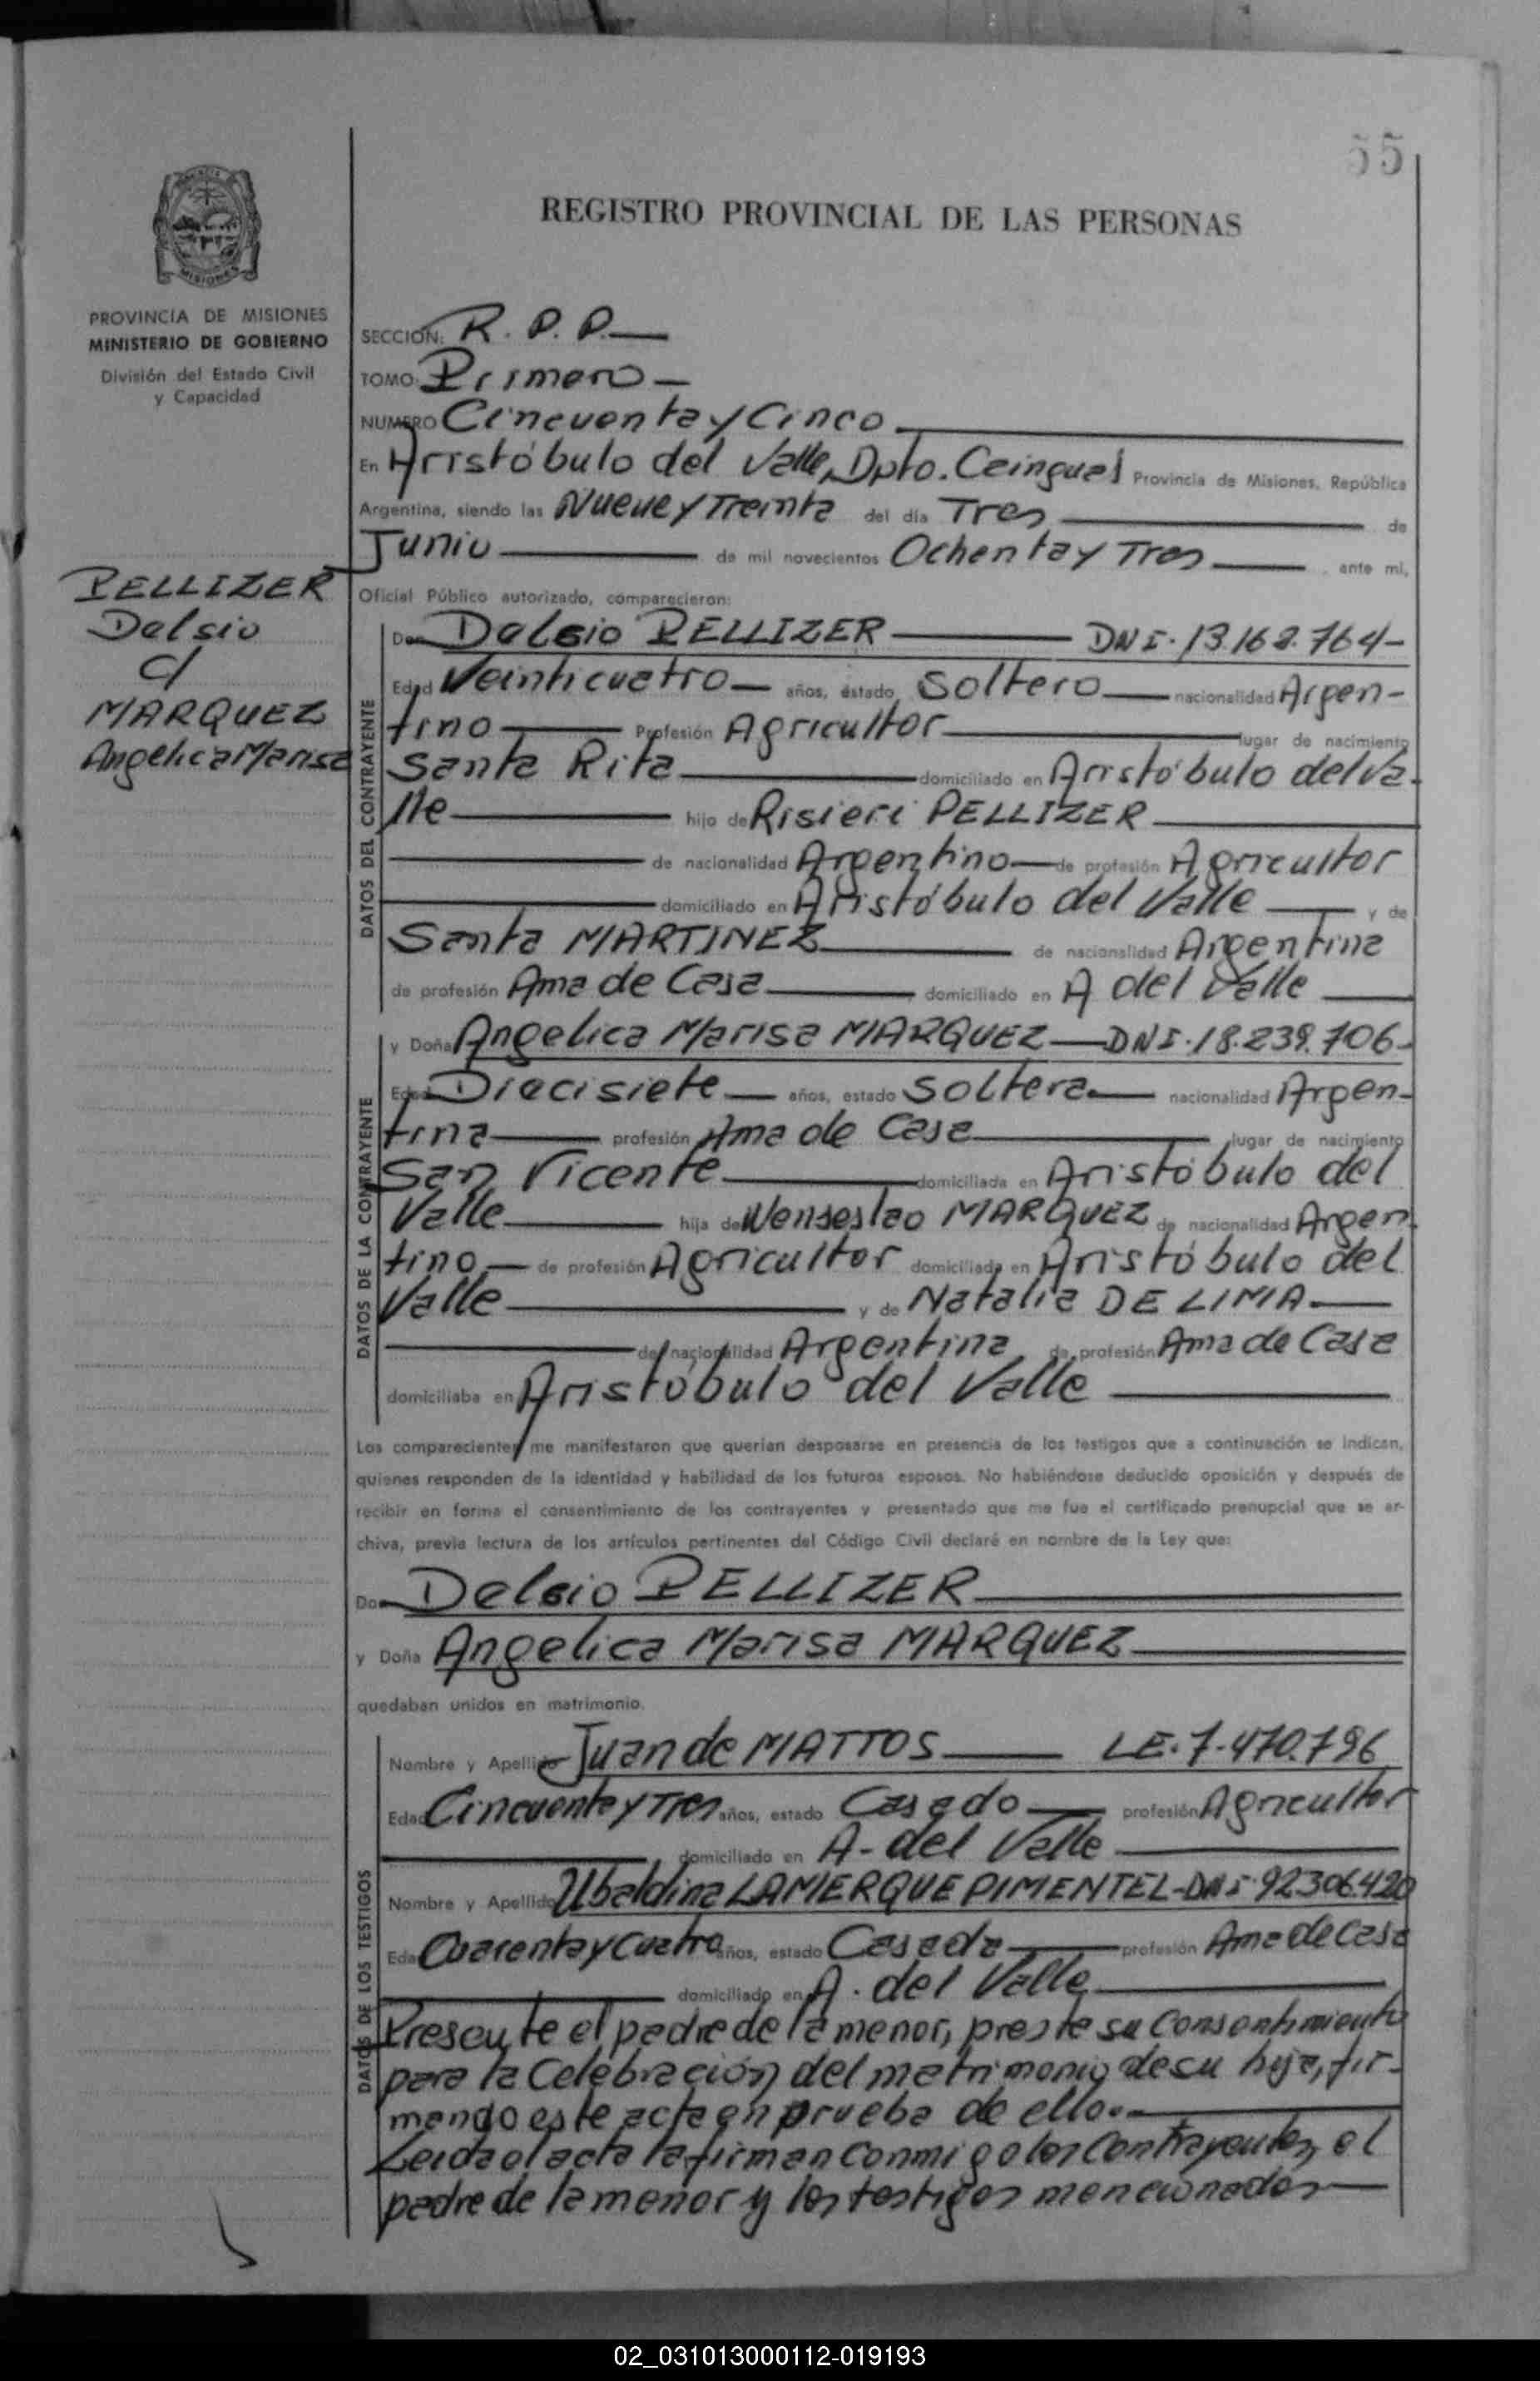 55
REGISTRO PROVINCIAL DE LAS PERSONAS
MISIONES
PROVINCIA DE MISIONES
MINISTERIO DE GOBIERNO
División del Estado Civil
y Capacidad
PELLIZER
Delsio
c/
MARQUEZ
Angelica Marisa
SECCIÓN: R. P. P.
TOMO: Primero
NUMERO Cincuenta y Cinco
En Aristóbulo del Valle, Dpto. Caingual Provincia de Misiones, República
Argentina, siendo las Nueve y Treinta del día Tres de
Junio de mil novecientos Ochenta y Tres, ante mí,
Oficial Público autorizado, comparecieron:
DATOS DEL CONTRAYENTE
Don Delsio PELLIZER DNI. 13.162.764-
Edad Veinticuatro años, estado Soltero nacionalidad Argen-
tino Profesión Agricultor lugar de nacimiento
Santa Rita domiciliado en Aristóbulo del Va-
lle hijo de Risieri PELLIZER
de nacionalidad Argentino de profesión Agricultor
domiciliado en Aristóbulo del Valle y de
Santa MARTINEZ de nacionalidad Argentina
de profesión Ama de Casa domiciliado en A del Valle
DATOS DE LA CONTRAYENTE
y Doña Angelica Marisa MARQUEZ DNI. 18.239.706-
Edad Diecisiete años, estado Soltera nacionalidad Argen-
tina profesión Ama de Casa lugar de nacimiento
San Vicente domiciliada en Aristóbulo del
Valle hija de Wenseslao MARQUEZ de nacionalidad Argen
tino de profesión Agricultor domiciliado en Aristóbulo del
Valle y de Natalia DE LIMA
de nacionalidad Argentina de profesión Ama de Casa
domiciliaba en Aristóbulo del Valle
Los comparecientes me manifestaron que querían desposarse en presencia de los testigos que a continuación se indican,
quienes responden de la identidad y habilidad de los futuros esposos. No habiéndose deducido oposición y después de
recibir en forma el consentimiento de los contrayentes y presentado que me fue el certificado prenupcial que se ar-
chiva, previa lectura de los artículos pertinentes del Código Civil declaré en nombre de la Ley que:
Don Delsio PELLIZER
y Doña Angelica Marisa MARQUEZ
quedaban unidos en matrimonio.
DATOS DE LOS TESTIGOS
Nombre y Apellido Juan de MATTOS LE. 7.470.796
Edad Cincuenta y Tres años, estado Casado profesión Agricultor
domiciliado en A- del Valle
Nombre y Apellido Ubaldina LAMERQUE PIMENTEL-DNI 92306.420
Edad Cuarenta y Cuatro años, estado Casada profesión Ama de Casa
domiciliado en A. del Valle
Presente el padre de la menor, preste su Consentimiento
para la Celebración del matrimonio de su hija, fir-
mando este acta en prueba de ello.-
Leida el acta la firman conmigo los Contrayentes, el
padre de la menor y los testigos mencionados
02_031013000112-019193